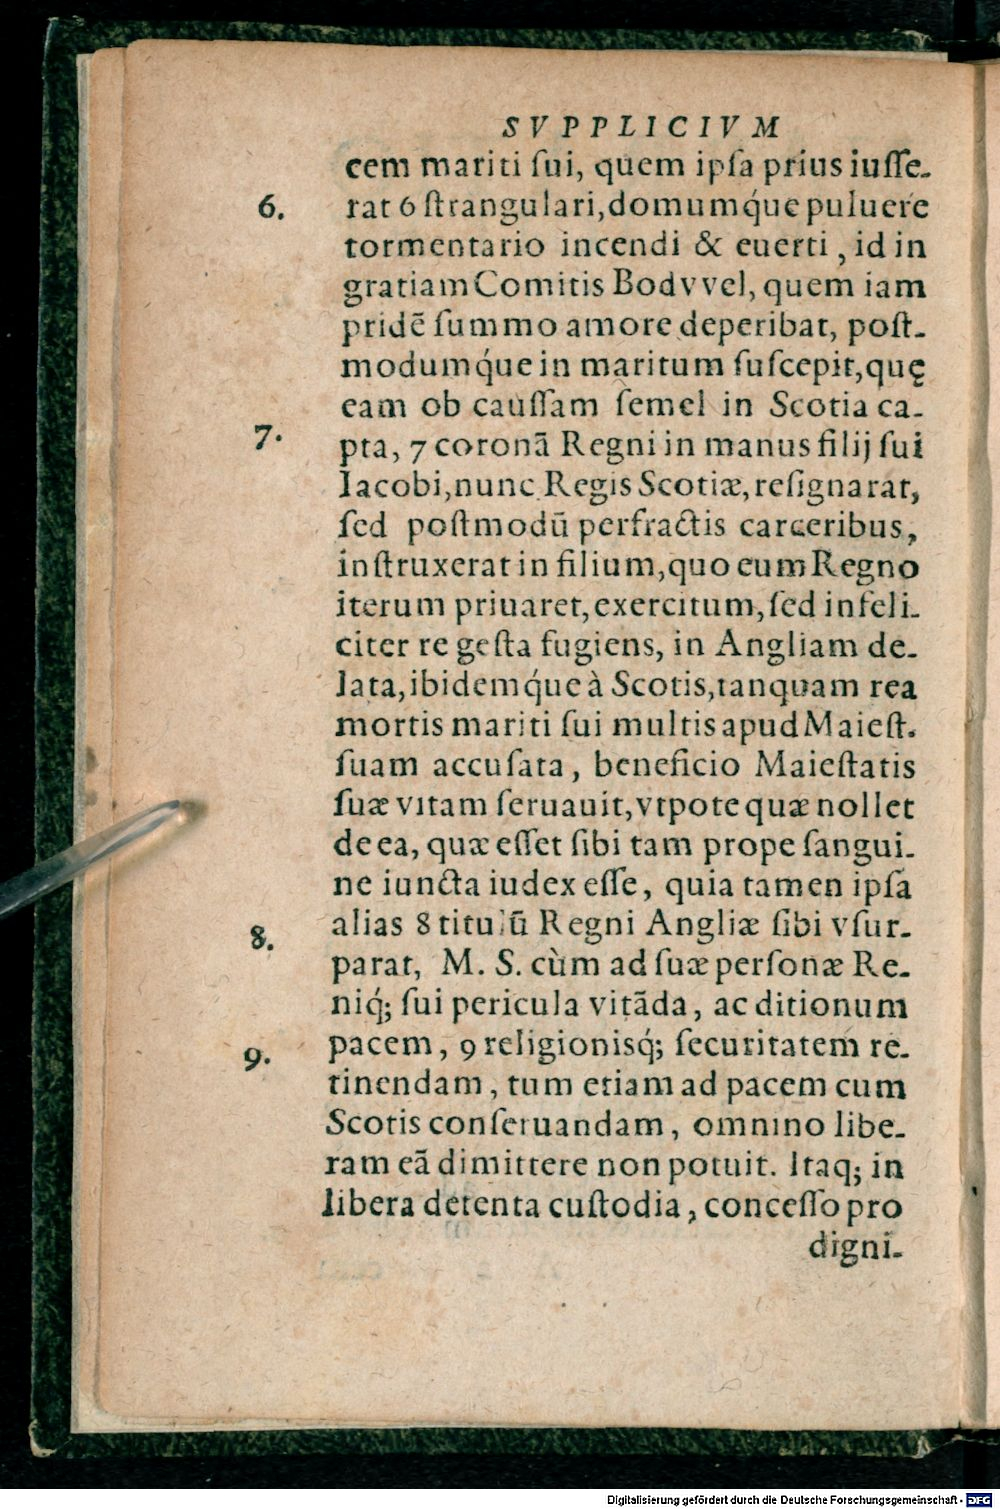 SVPPLICIVM
cem mariti ſui, quem ipſa prius iuſſe-
6. rat 6 ſtrangulari, domumq́ue puluere
tormentario incendi & euerti, id in
gratiam Comitis Bodvvel, quem iam
pridē ſummo amore deperibat, poſt-
modumq́ue in maritum ſuſcepit, quę
eam ob cauſſam ſemel in Scotia ca-
7. pta, 7 coronā Regni in manus filij ſui
Iacobi, nunc Regis Scotiæ, reſignarat,
ſed poſtmodū perfractis carceribus,
inſtruxerat in filium, quo eum Regno
iterum priuaret, exercitum, ſed infeli-
citer re geſta fugiens, in Angliam de-
lata, ibidemq́ue à Scotis, tanquam rea
mortis mariti ſui multis apud Maieſt.
ſuam accuſata, beneficio Maieſtatis
ſuæ vitam ſeruauit, vtpote quæ nollet
de ea, quæ eſſet ſibi tam prope ſangui-
ne iuncta iudex eſſe, quia tamen ipſa
8. alias 8 titulū Regni Angliæ ſibi vſur-
parat, M. S. cùm ad ſuæ perſonæ Re-
niq́; ſui pericula vitāda, ac ditionum
9. pacem, 9 religionisq́; ſecuritatem re-
tinendam, tum etiam ad pacem cum
Scotis conſeruandam, omnino libe-
ram eā dimittere non potuit. Itaq; in
libera detenta cuſtodia, conceſſo pro
digni-
Digitalisierung gefördert durch die Deutsche Forschungsgemeinschaft - DFG